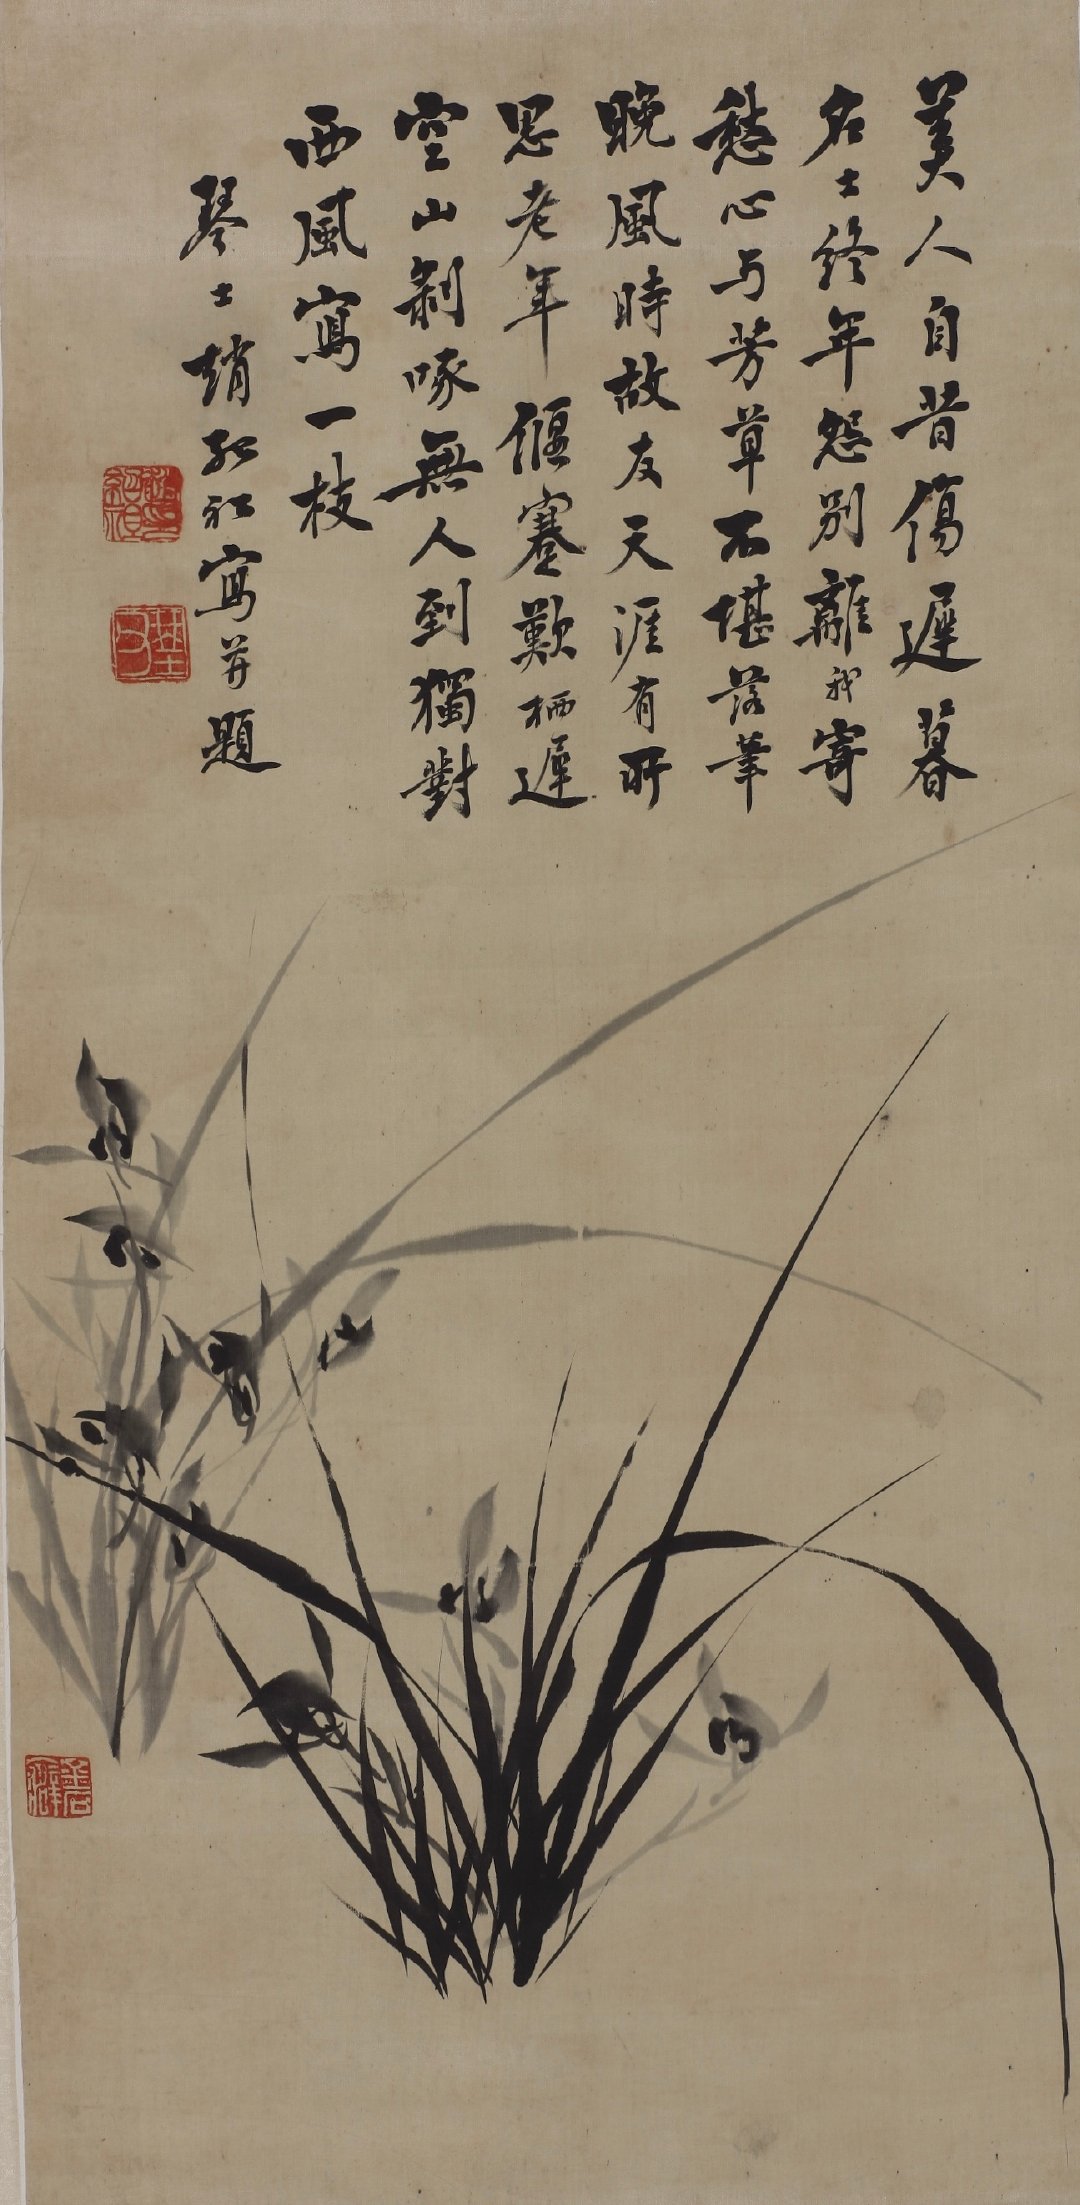 美人自昔傷遲暮
名士終年怨別離我寄
愁心与芳草不堪落筆
晚風時故友天涯有所
思老年偃蹇歎栖遲
空山剝啄無人到獨對
西風寫一枝
琴士趙紹祖寫并題